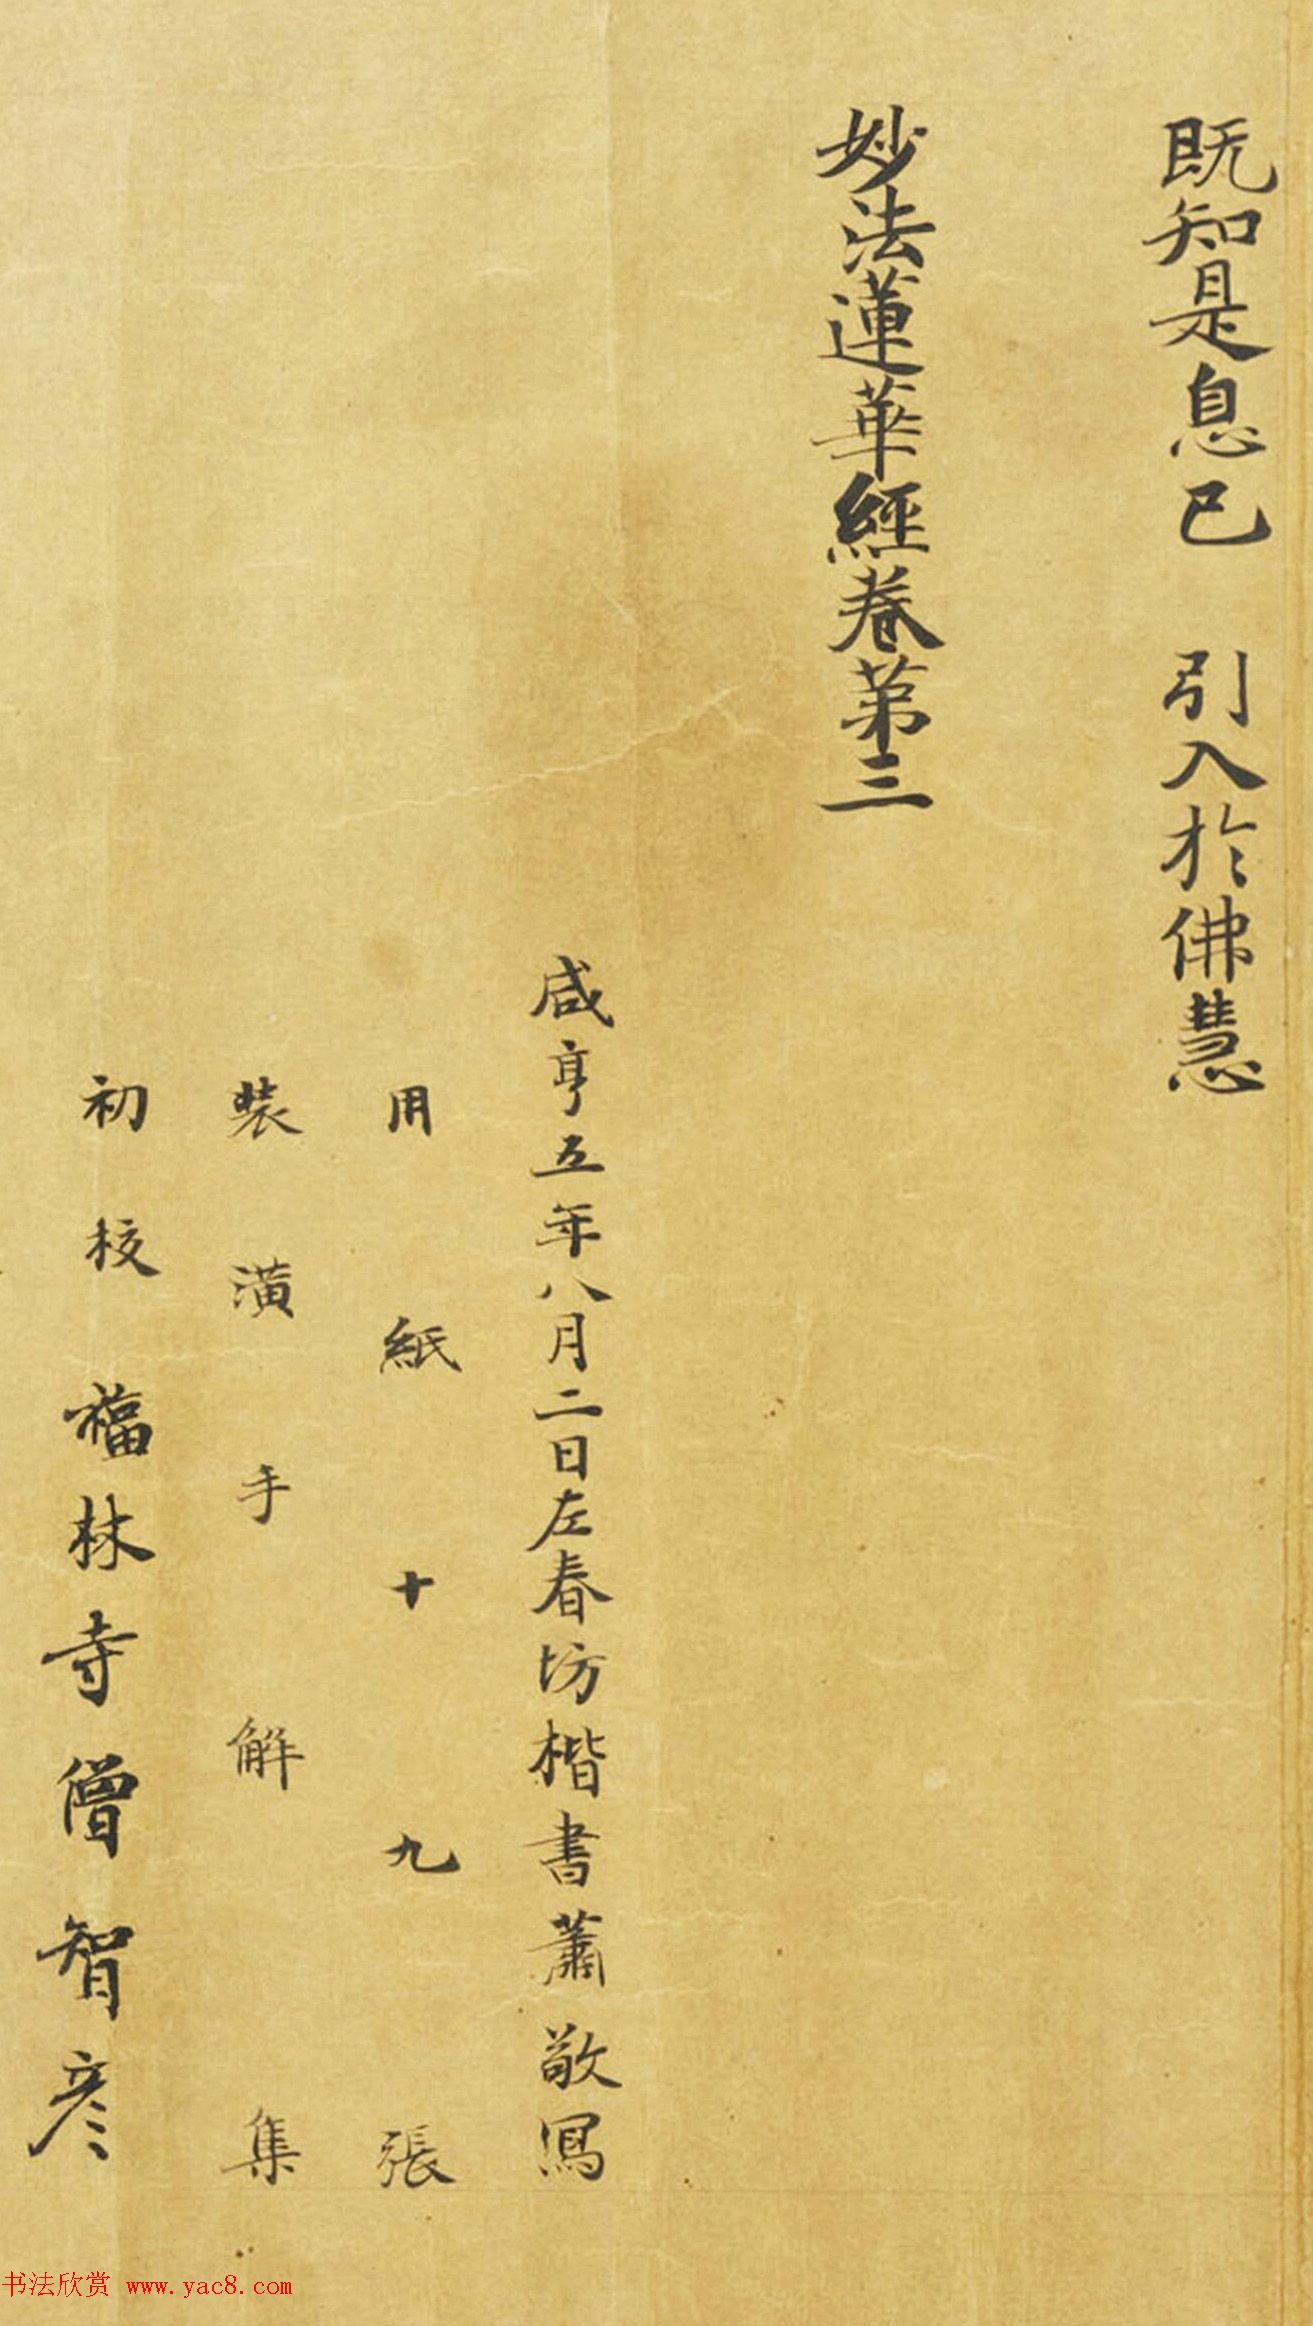 既知是息已　引入於佛慧
妙法蓮華經卷第三
咸亨五年八月二日左春坊楷書蕭敬寫
用紙十九張
裝潢手解集
初校福林寺僧智彥
书法欣赏 www.yac8.com